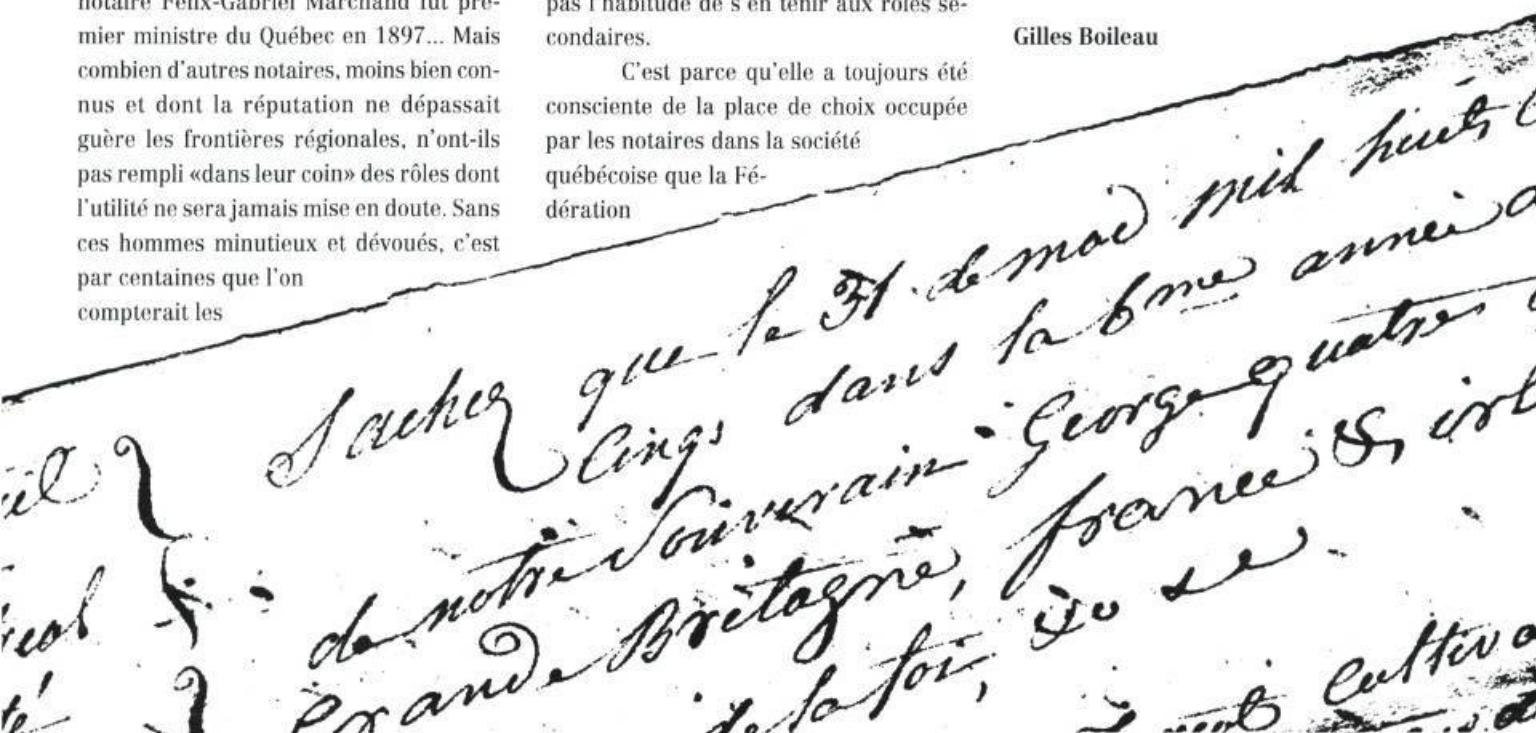 notaire Félix-Gabriel Marchand fut pre-
mier ministre du Québec en 1897... Mais
combien d'autres notaires, moins bien con-
nus et dont la réputation ne dépassait
guère les frontières régionales, n'ont-ils
pas rempli «dans leur coin» des rôles dont
l'utilité ne sera jamais mise en doute. Sans
ces hommes minutieux et dévoués, c'est
par centaines que l'on
compterait les
pas l'habitude de s'en tenir aux rôles se-
condaires.
C'est parce qu'elle a toujours été
consciente de la place de choix occupée
par les notaires dans la société
québécoise que la Fé-
dération
Gilles Boileau
Sachez que le 31 de mai mil huits
Cinqs dans la 6me année
de notre Souverain George quatres
Grande Bretagne, france &
de la foi,